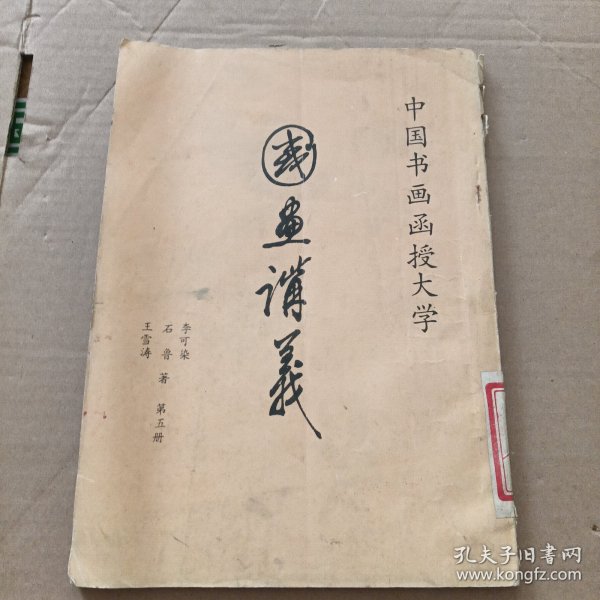 中国书画函授大学
國畫講義
李可染
石鲁 著
王雪涛
第五册
孔夫子旧书网
www.kongfz.com